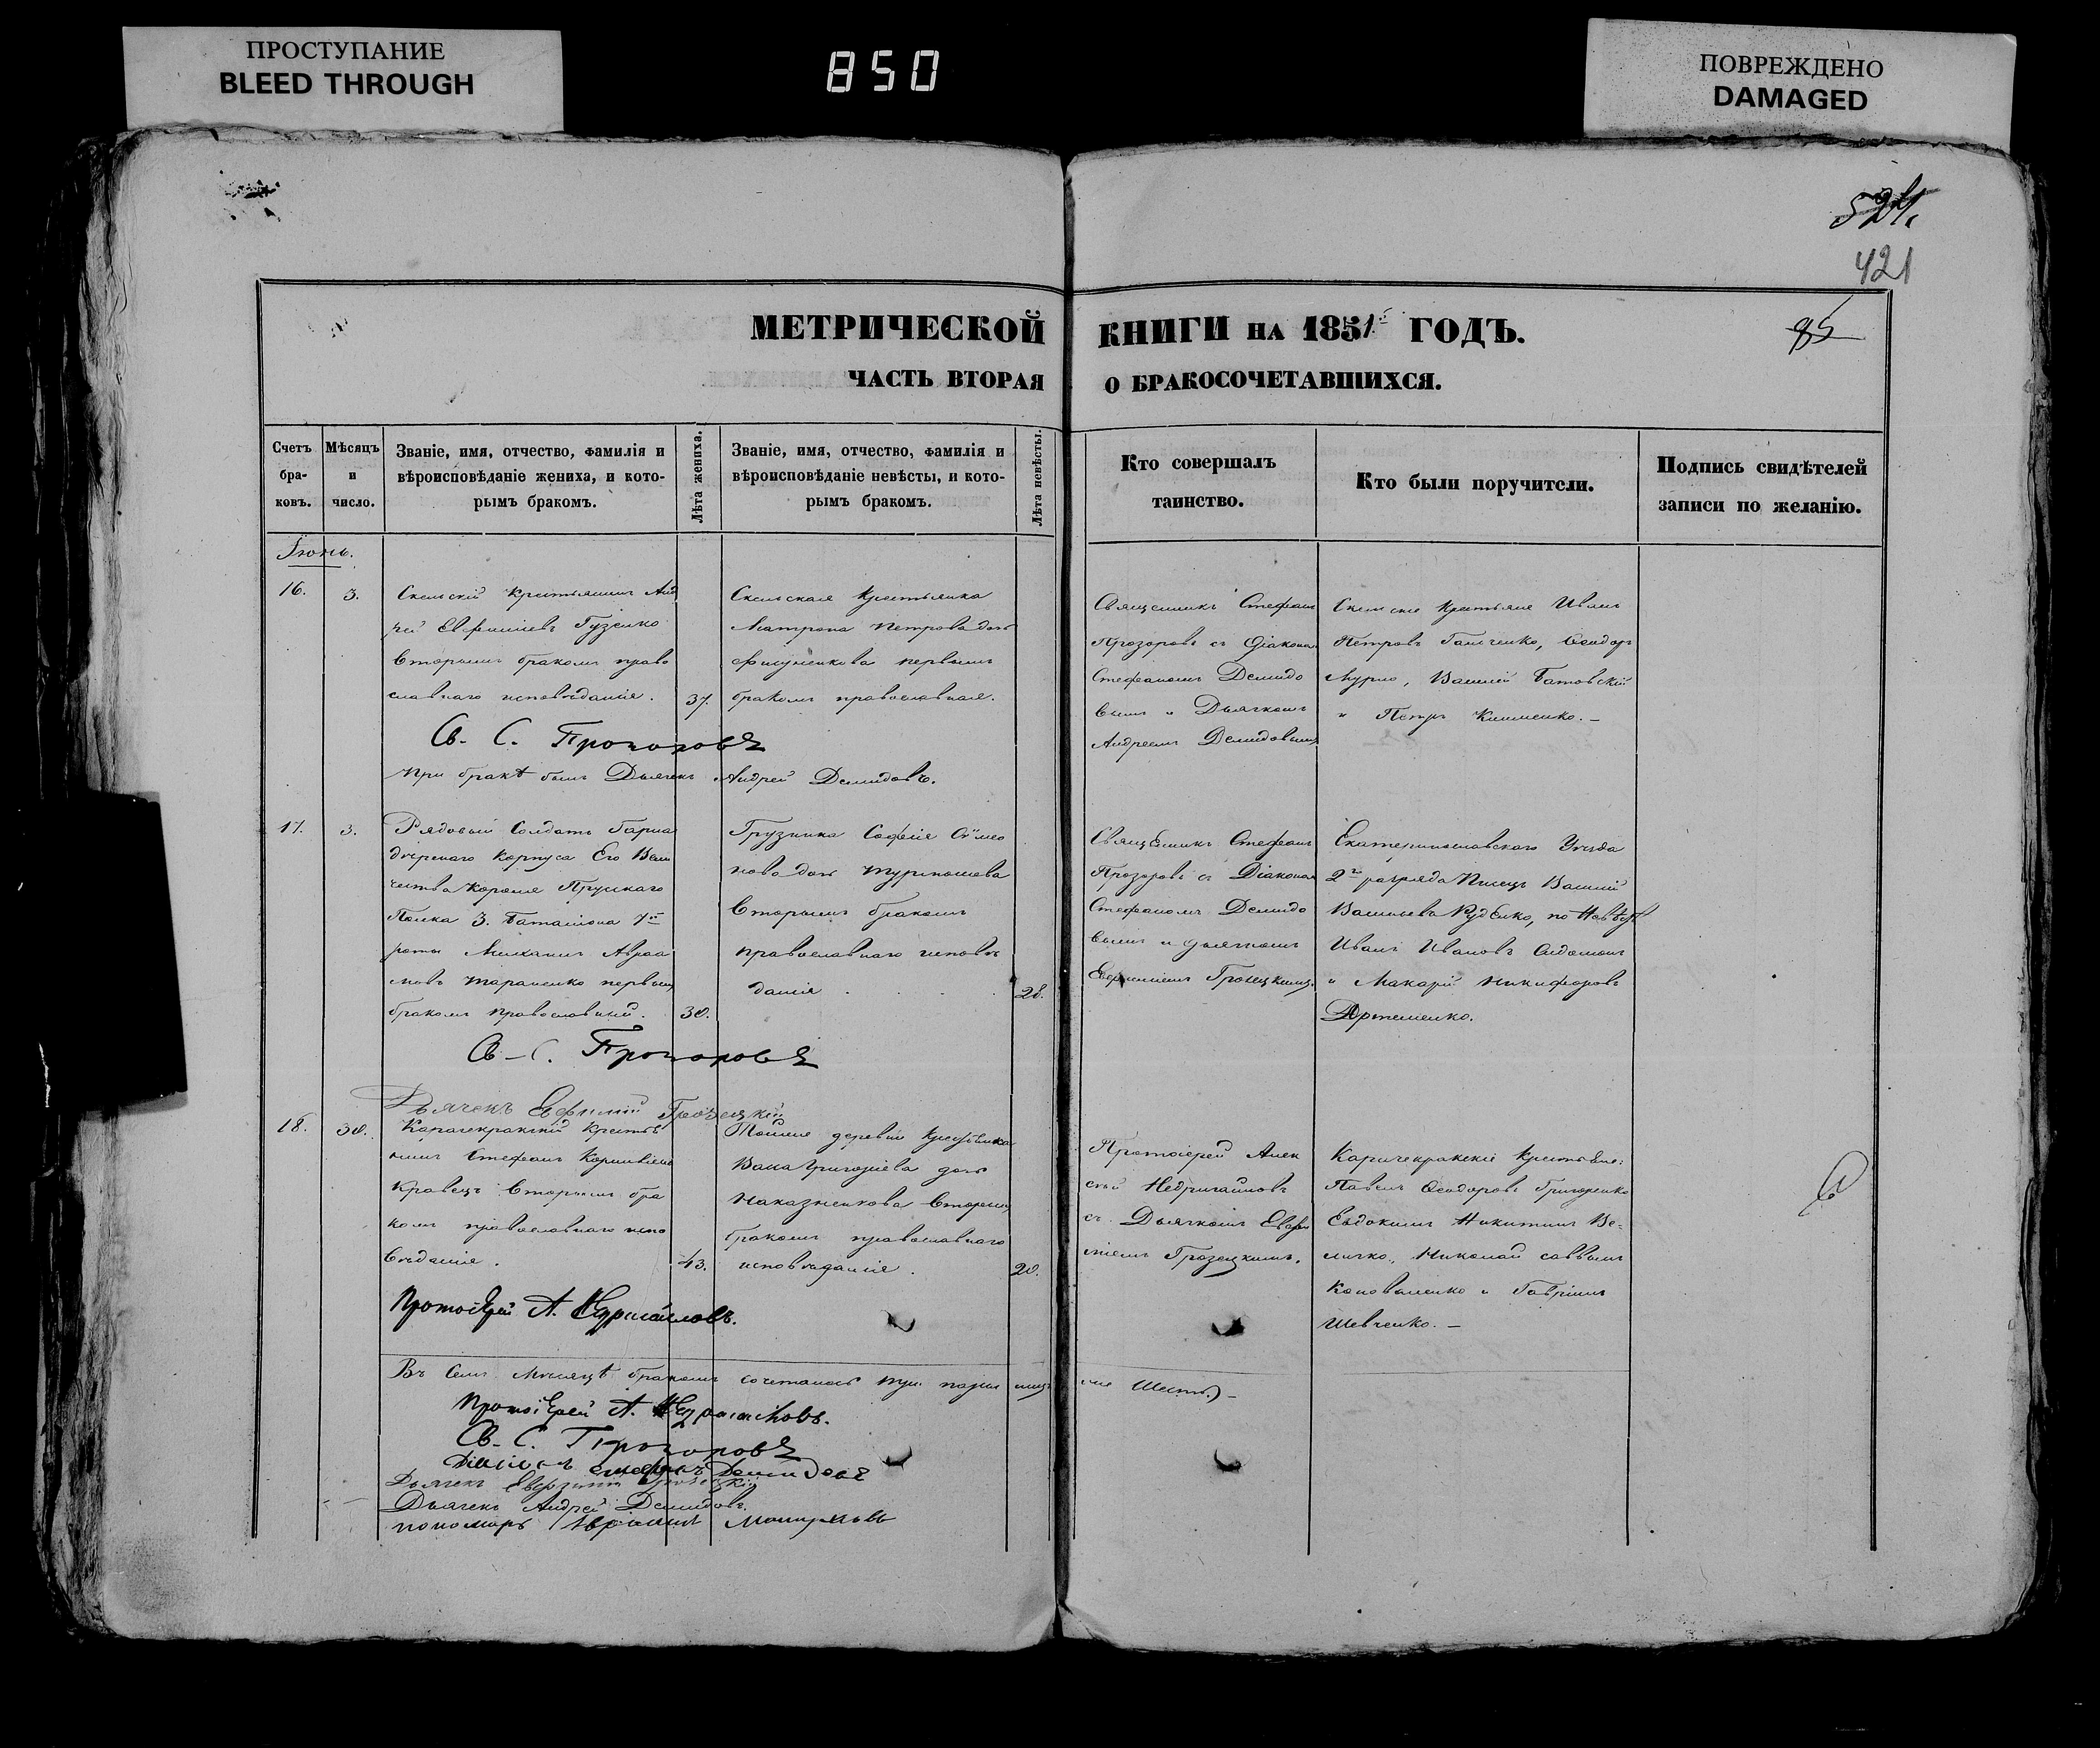 ПРОСТУПАНИЕ
BLEED THROUGH
850
ПОВРЕЖДЕНО
DAMAGED
421
85
МЕТРИЧЕСКОЙ КНИГИ НА 1851 ГОДЪ.
ЧАСТЬ ВТОРАЯ О БРАКОСОЧЕТАВШИХСЯ.
Счетъ бра-ковъ.
Мѣсяцъ и число.
Званіе, имя, отчество, фамилія и
вѣроисповѣданіе жениха, и кото-
рымъ бракомъ.
Лѣта жениха.
Званіе, имя, отчество, фамилія и
вѣроисповѣданіе невѣсты, и кото-
рымъ бракомъ.
Лѣта невѣсты.
Кто совершалъ
таинство.
Кто были поручители.
Подпись свидѣтелей
записи по желанію.
Іюнь.
16. 3.
Скельскій крестьянинъ Анд
рей Евфиміевъ Гузенко
вторымъ бракомъ право
славнаго исповѣданія. 37.
Скельская крестьянка
Матрона Петрова дочь
первымъ
бракомъ православная.
Священникъ Стефанъ
Прозоровъ съ Діакономъ
Стефаномъ Демидо
вымъ и Дьячкомъ
Андреемъ Демидовымъ
Скельские крестьяне Иванъ
Петровъ Ѳеодоръ
Мурло, Василій
и Петръ Клименко. –
Св. С. Прозоровъ
При бракѣ былъ Дьячекъ Андрей Демидовъ.
17. 3.
Рядовый Солдатъ Грена
дѣрскаго Корпуса Его Вели
чества Короля Прускаго
Полка 3. Баталіона 7й
роты Михаилъ Авраа
мовъ Тараненко первымъ
бракомъ православный. 30.
София Сімео
нова дочь
вторымъ бракомъ
православнаго исповѣ
данія 28.
Священникъ Стефанъ
Прозоровъ съ Діакономъ
Стефаномъ Демидо
вымъ и дьячкомъ
Евфиміемъ Грозецкимъ.
Екатеринославскаго Уѣзда
2го разряда Писецъ Василій
Васильевъ Руденко, по
Иванъ Ивановъ
и Макарій Никифоровъ
Артеменко.
Св. С. Прозоровъ
Дьячекъ Евфимій Грозецкій
18. 30.
Карачекракскій крестья
нинъ Стефанъ Корниліевъ
Кравецъ вторымъ бра
комъ православнаго испо
вѣданія. 43.
Тойже деревни крестьянка
Григоріева дочь
Наказненкова вторымъ
бракомъ православнаго
исповѣданія. 20.
Протоіерей Алек
сѣй Недригайловъ
съ Дьячкомъ Евфи
міемъ Грозецкимъ.
Карачекракскіе крестьяне:
Павелъ Ѳеодоровъ Григоренко
Евдокимъ Никитинъ Ве-
личко, Николай Саввинъ
Коноваленко и Гавріилъ
Шевченко. –
Протоіерей А. Недригайловъ.
Въ семъ мѣсяцѣ бракомъ сочеталось три пары лицъ же шесть) –
Протоіерей А. Недригайловъ.
Св. С. Прозоровъ
Діаконъ Стефанъ Демидовъ
Дьячекъ Евфимій Грозецкій
Дьячекъ Андрей Демидовъ.
пономарь